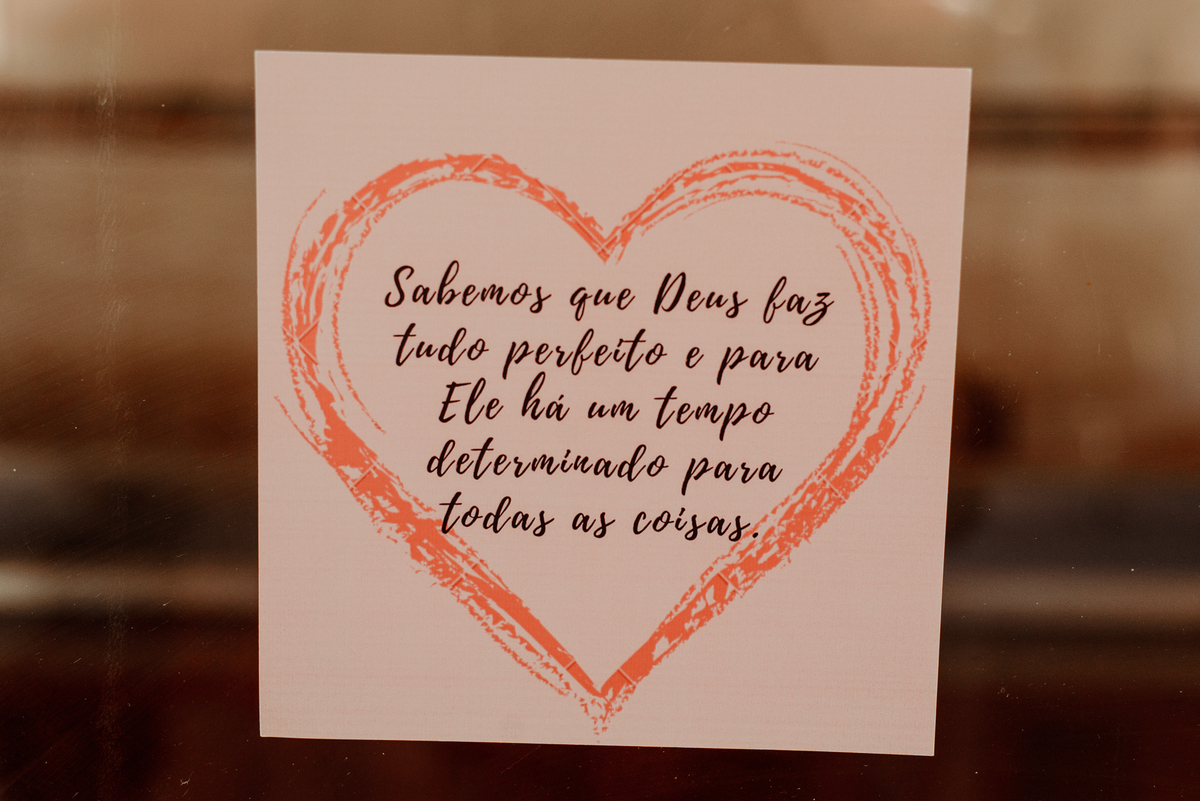 Sabemos que Deus faz
tudo perfeito e para
Ele há um tempo
determinado para
todas as coisas.